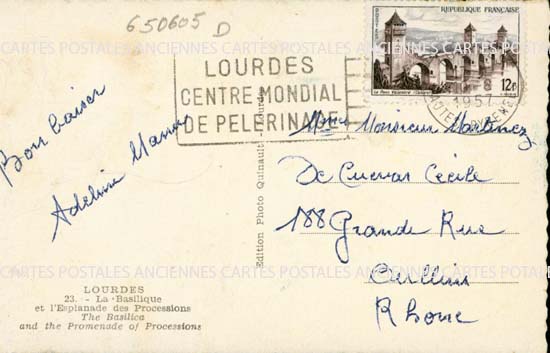 650605 D
CARTES POSTALES ANCIENNES CARTES POSTALES ANCIENNES
REPUBLIQUE FRANÇAISE
12F
Le Pont Valentré (Cahors)
1957
LOURDES
CENTRE MONDIAL
DE PELERINAGE
Bon baiser
Adeline
Mme Monsieur Martinez
De Cuevar Cécile
188 Grande Rue
Oullins
Rhone
Edition Photo Quinault - Lourdes
LOURDES
23. - La Basilique
et l'Esplanade des Processions
The Basilica
and the Promenade of Processions